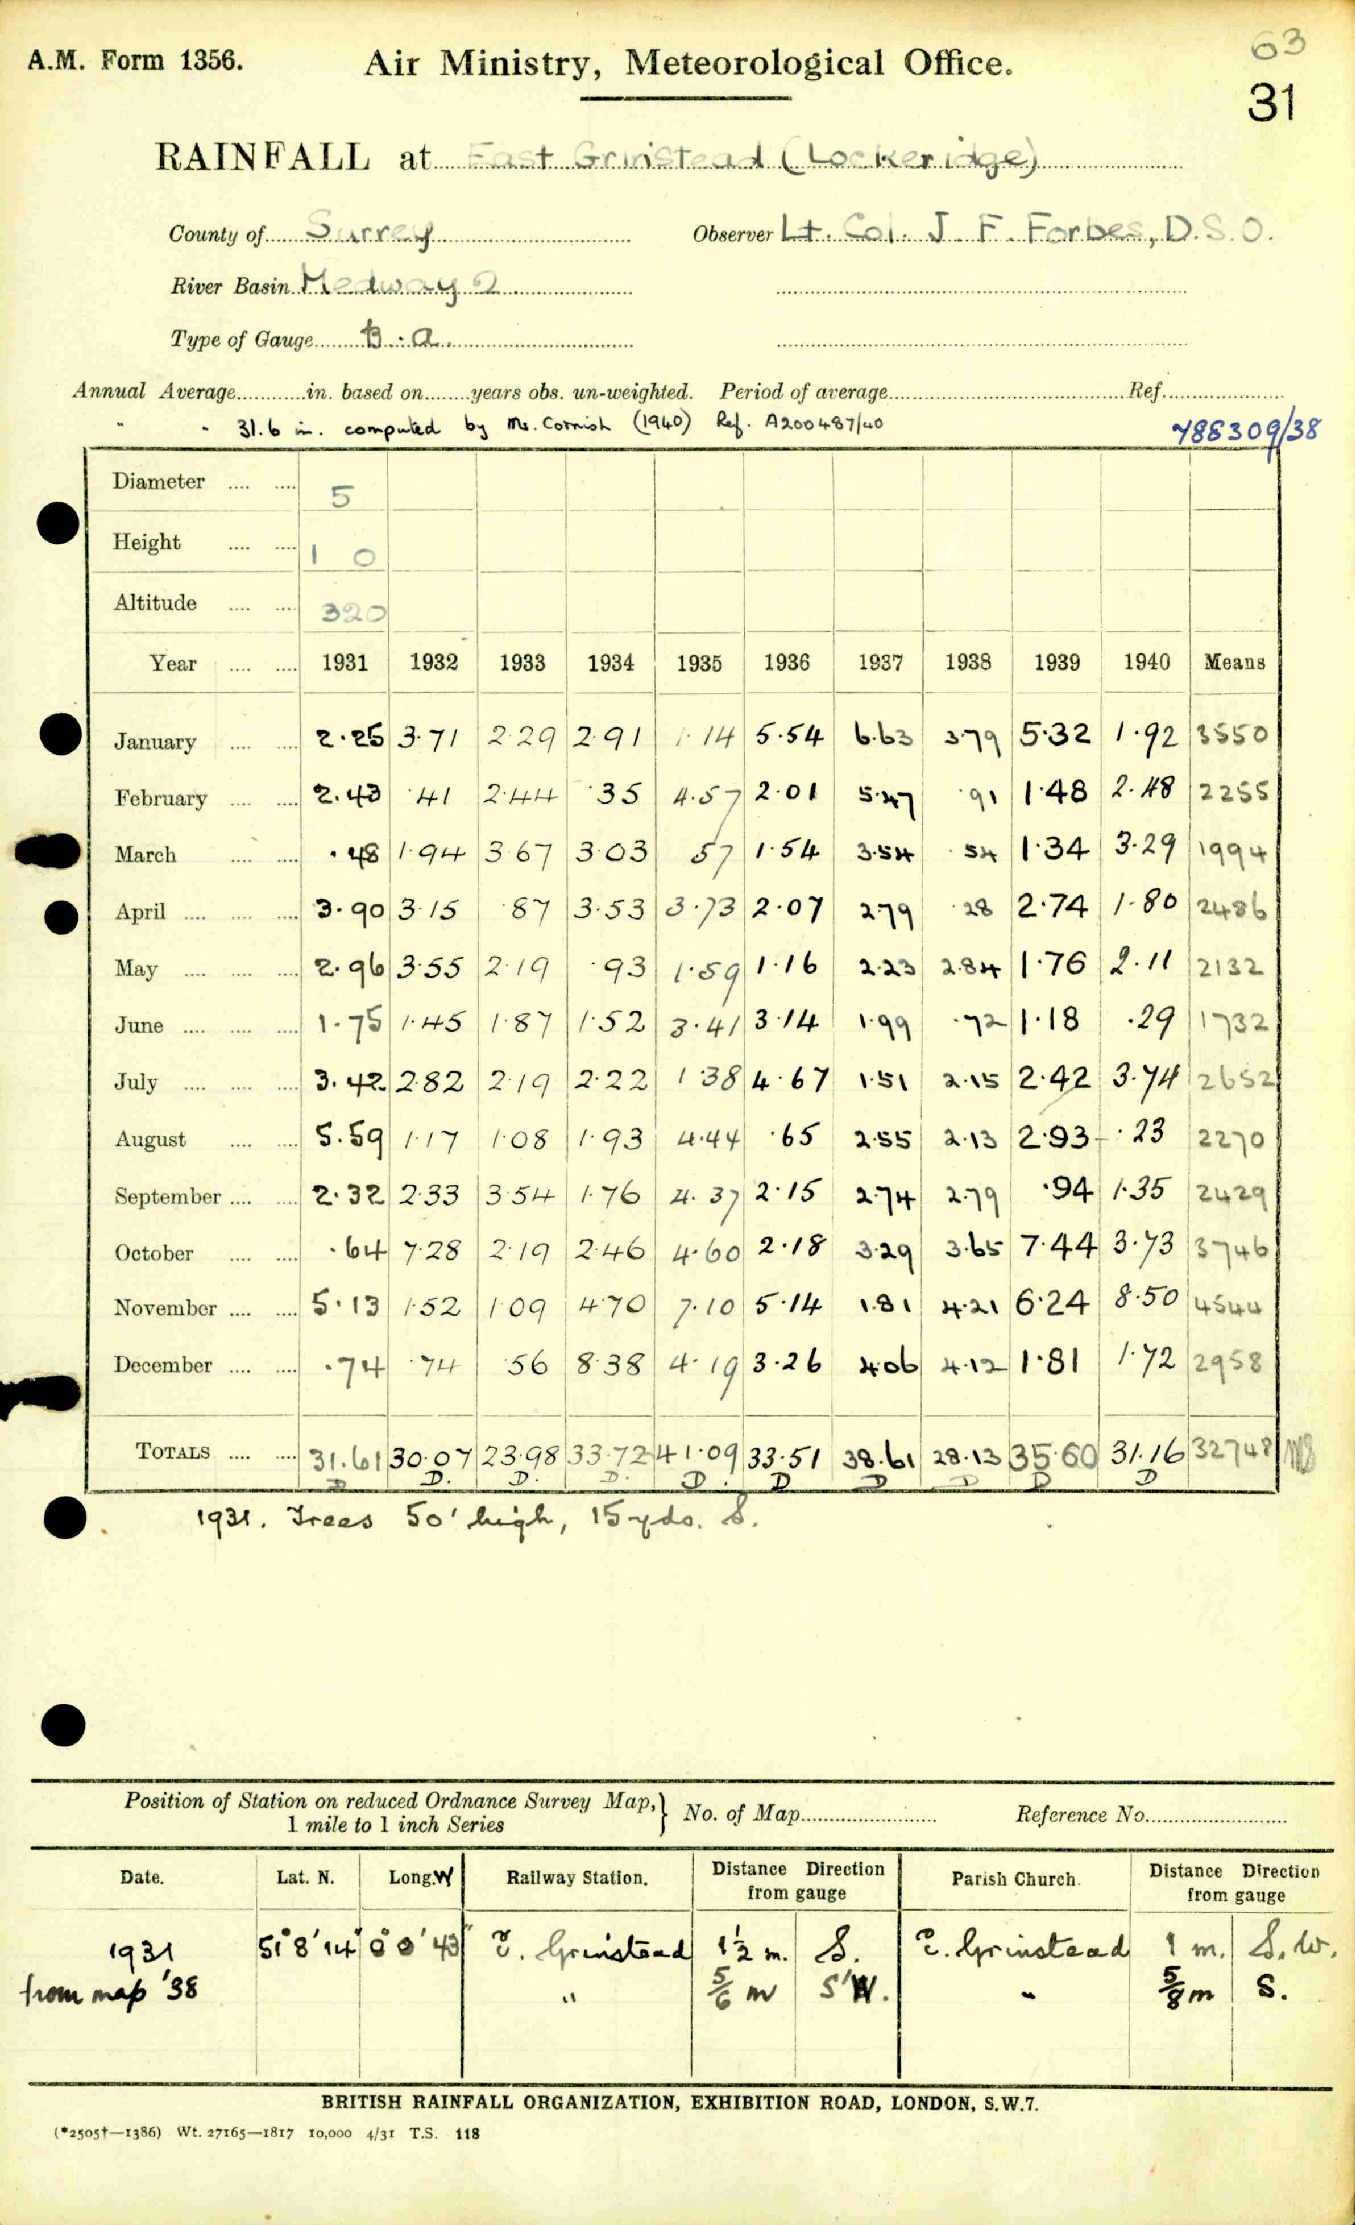 63
A.M. Form 1356. Air Ministry, Meteorological Office.
31
RAINFALL at East Grinstead (Lockeridge)
County of Surrey Observer Lt. Col. J. F. Forbes, D.S.O.
River Basin Medway 2
Type of Gauge B.a.
Annual Average in. based on years obs. un-weighted. Period of average Ref.
" " 31.6 in. computed by Mr. Cornish (1940) Ref. A200487/40 788309/38
Diameter 5
Height 1 0
Altitude 320
Year 1931 1932 1933 1934 1935 1936 1937 1938 1939 1940 Means
January 2.25 3.71 2.29 2.91 1.14 5.54 6.63 3.79 5.32 1.92 3550
February 2.43 .41 2.44 .35 4.57 2.01 5.47 .91 1.48 2.48 2255
March .48 1.94 3.67 3.03 .57 1.54 3.54 .54 1.34 3.29 1994
April 3.90 3.15 .87 3.53 3.73 2.07 2.79 .28 2.74 1.80 2486
May 2.96 3.55 2.19 .93 1.59 1.16 2.23 2.84 1.76 2.11 2132
June 1.75 1.45 1.87 1.52 3.41 3.14 1.99 .72 1.18 .29 1732
July 3.42 2.82 2.19 2.22 1.38 4.67 1.51 2.15 2.42 3.74 2652
August 5.59 1.17 1.08 1.93 4.44 .65 2.55 2.13 2.93 .23 2270
September 2.32 2.33 3.54 1.76 4.37 2.15 2.74 2.79 .94 1.35 2429
October .64 7.28 2.19 2.46 4.60 2.18 3.29 3.65 7.44 3.73 3746
November 5.13 1.52 1.09 4.70 7.10 5.14 1.81 4.21 6.24 8.50 4544
December .74 .74 .56 8.38 4.19 3.26 4.06 4.12 1.81 1.72 2958
TOTALS 31.61 30.07 23.98 33.72 41.09 33.51 38.61 28.13 35.60 31.16 32748
D D. D. D. D. D D D D D
1931. Trees 50' high, 15 yds. S.
Position of Station on reduced Ordnance Survey Map, 1 mile to 1 inch Series } No. of Map Reference No.
Date. Lat. N. Long. W Railway Station. Distance Direction from gauge Parish Church. Distance Direction from gauge
1931 51° 8' 14" 0° 0' 43" E. Grinstead 1½ m. S. E. Grinstead 1 m. S.W.
from map '38 " 5/6 m S'W. " 5/8 m S.
BRITISH RAINFALL ORGANIZATION, EXHIBITION ROAD, LONDON, S.W.7.
(*2505†—1386) Wt. 27165—1817 10,000 4/31 T.S. 118